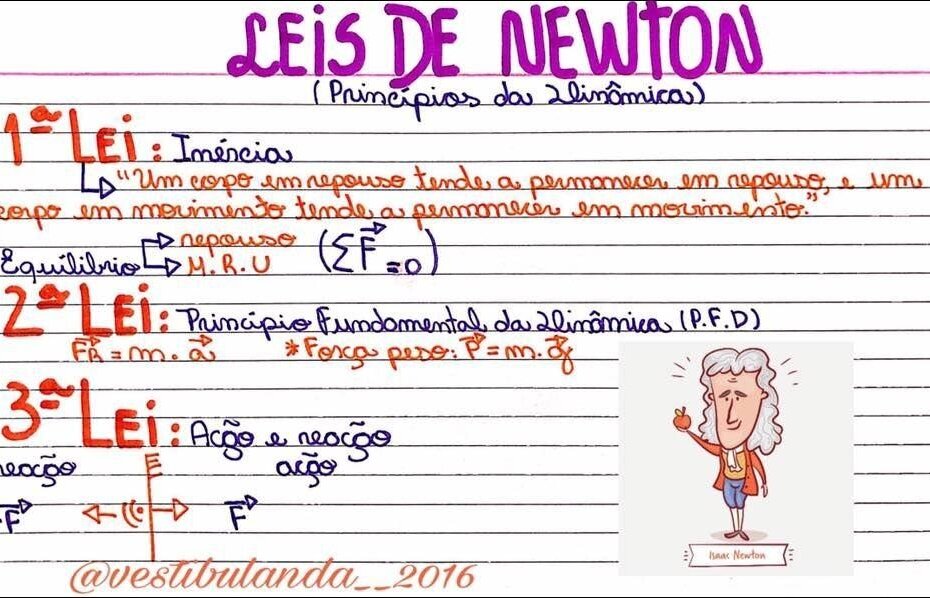 LEIS DE NEWTON
(Princípios da Dinâmica)
1ª LEI: Inércia
"Um corpo em repouso tende a permanecer em repouso, e um
corpo em movimento tende a permanecer em movimento."
Equilíbrio repouso (ΣF⃗ =0)
M.R.U
2ª LEI: Princípio Fundamental da Dinâmica (P.F.D)
F⃗R = m. a⃗ *Força peso: P⃗ = m. g⃗
3ª LEI: Ação e reação
reação ação
-F⃗ F⃗
Isaac Newton
@vestibulanda__2016